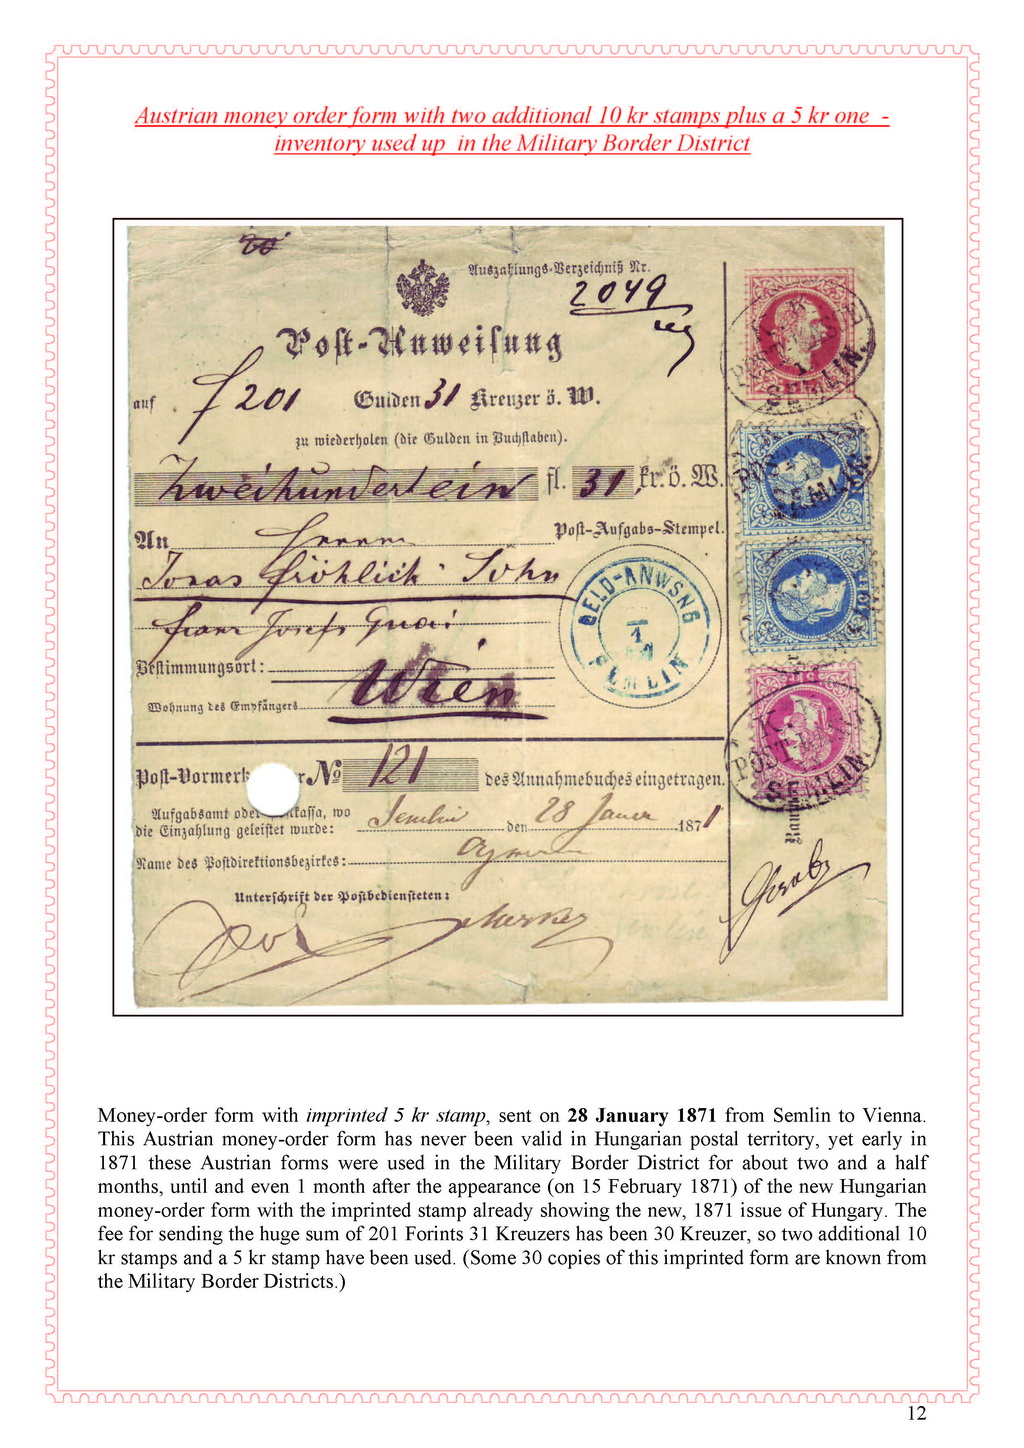 Austrian money order form with two additional 10 kr stamps plus a 5 kr one -
inventory used up in the Military Border District
Auszahlungs-Verzeichniß Nr.
2049
Post-Anweisung
auf f 201 Gulden 31 Kreuzer ö. W.
zu wiederholen (die Gulden in Buchstaben).
Zweihundertein fl. 31 kr. ö. W.
Post-Aufgabs-Stempel.
An Herrn
Jonas Fröhlich Sohn
Franz Josefs Quai
Bestimmungsort:
Wien
Wohnung des Empfängers
GELD-ANWSNG
SEMLIN
SEMLIN.
SEMLIN.
SEMLIN.
Post-Vormerk r No 121 des Annahmebuches eingetragen.
Aufgabsamt oder kassa, wo
die Einzahlung geleistet wurde: Semlin den 28 Januar 1871
Name des Postdirektionsbezirkes:
Unterschrift der Postbediensteten:
Money-order form with imprinted 5 kr stamp, sent on 28 January 1871 from Semlin to Vienna.
This Austrian money-order form has never been valid in Hungarian postal territory, yet early in
1871 these Austrian forms were used in the Military Border District for about two and a half
months, until and even 1 month after the appearance (on 15 February 1871) of the new Hungarian
money-order form with the imprinted stamp already showing the new, 1871 issue of Hungary. The
fee for sending the huge sum of 201 Forints 31 Kreuzers has been 30 Kreuzer, so two additional 10
kr stamps and a 5 kr stamp have been used. (Some 30 copies of this imprinted form are known from
the Military Border Districts.)
12